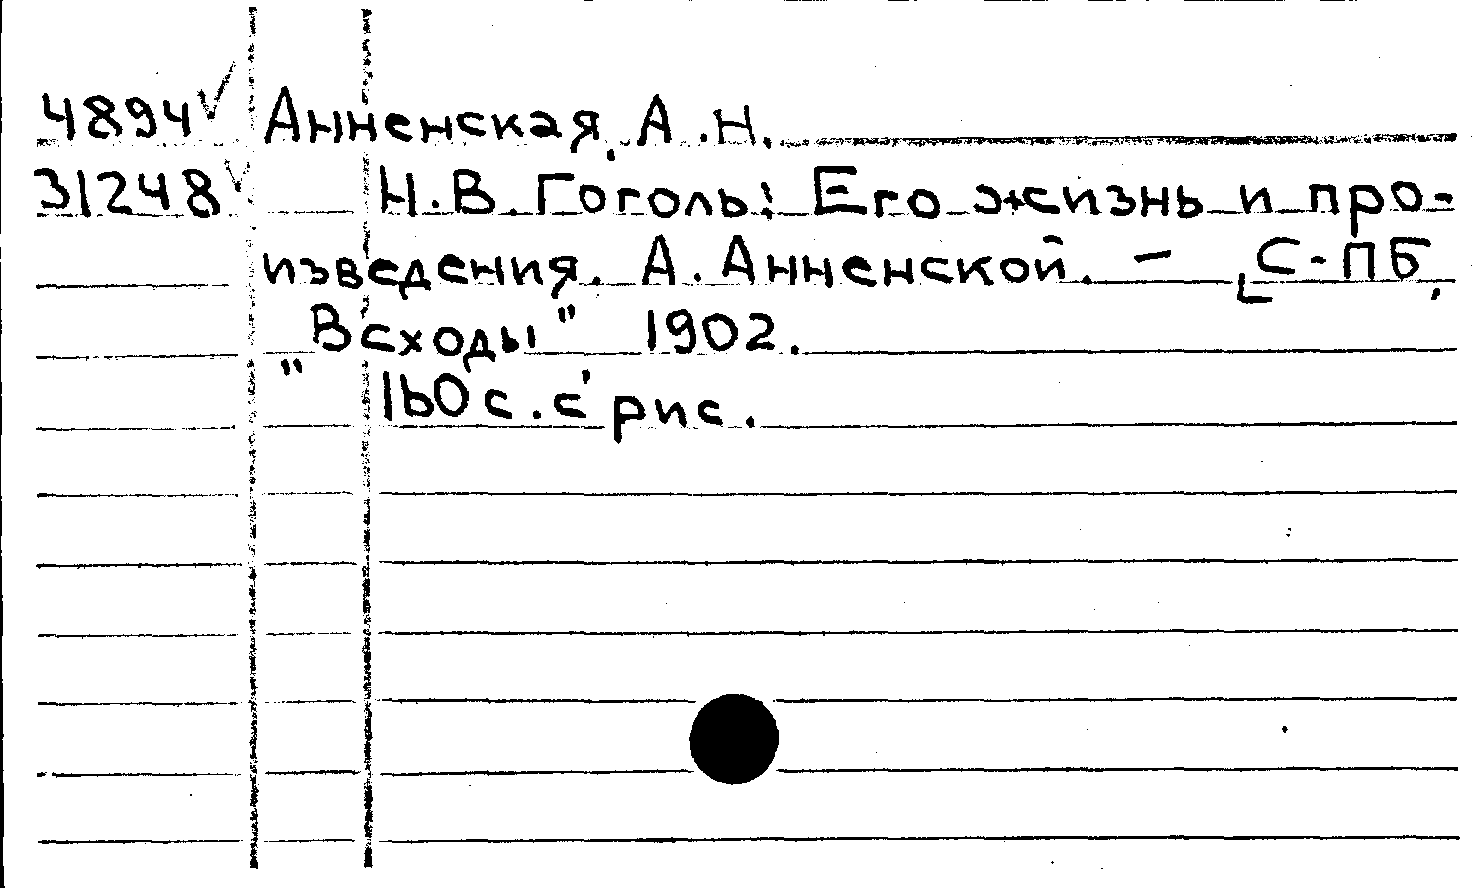 4894 Анненская, А.Н.
31248 Н.В.Гоголь: Его жизнь и про-
изведения. А. Анненской. – С-ПБ,
"Всходы" 1902.
160с. с рис.